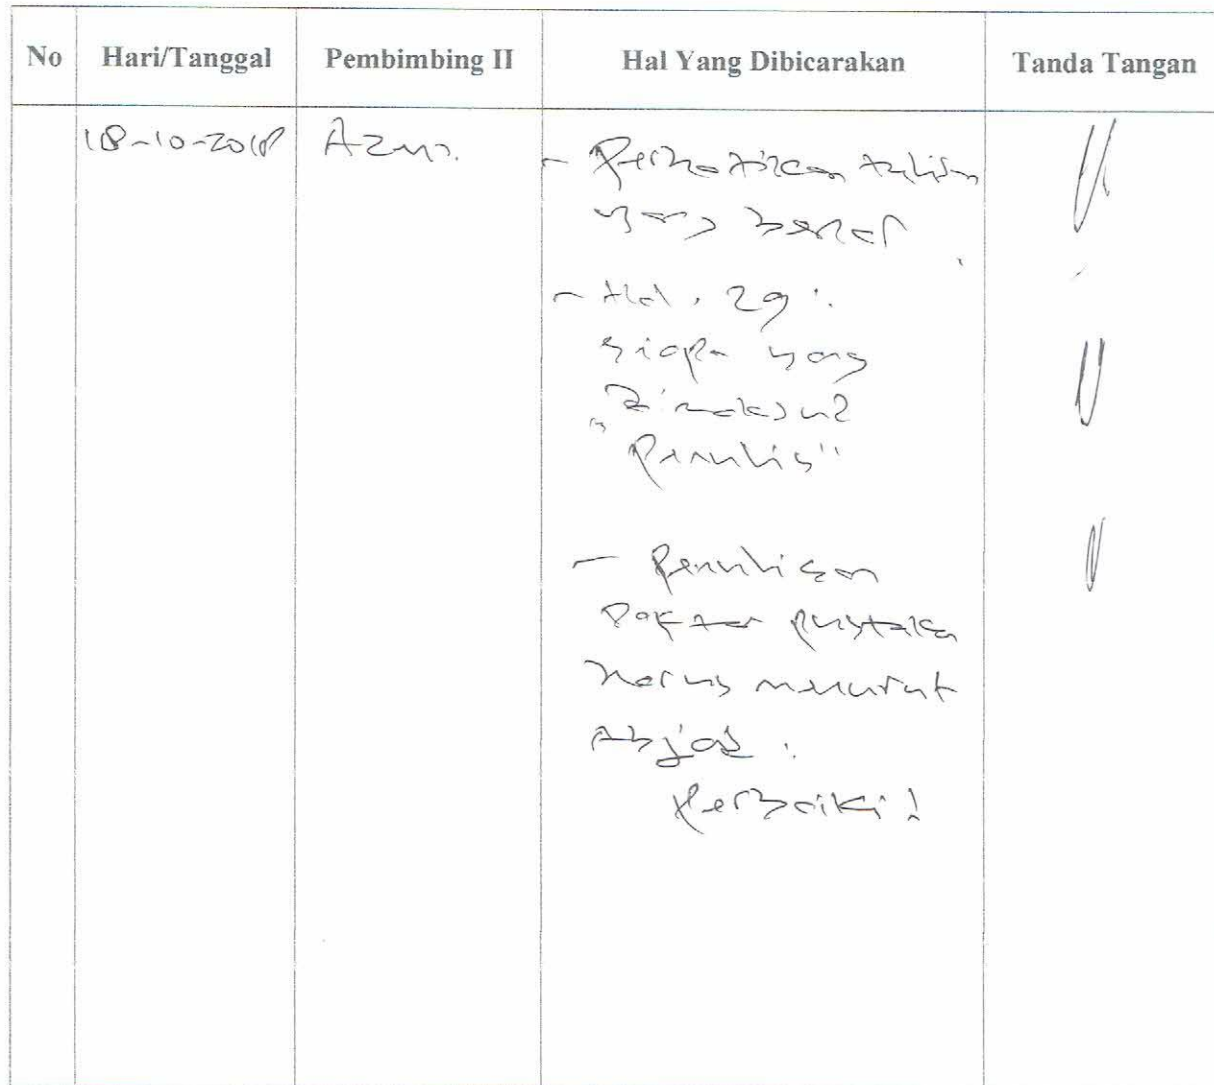 No Hari/Tanggal Pembimbing II Hal Yang Dibicarakan Tanda Tangan
18-10-2018
- Perhatikan tulisan
yang benar.
- Hal. 29 :
siapa yang
dimaksud
"Penulis"
- Penulisan
Daftar pustaka
harus menurut
Abjad.
Perbaiki!